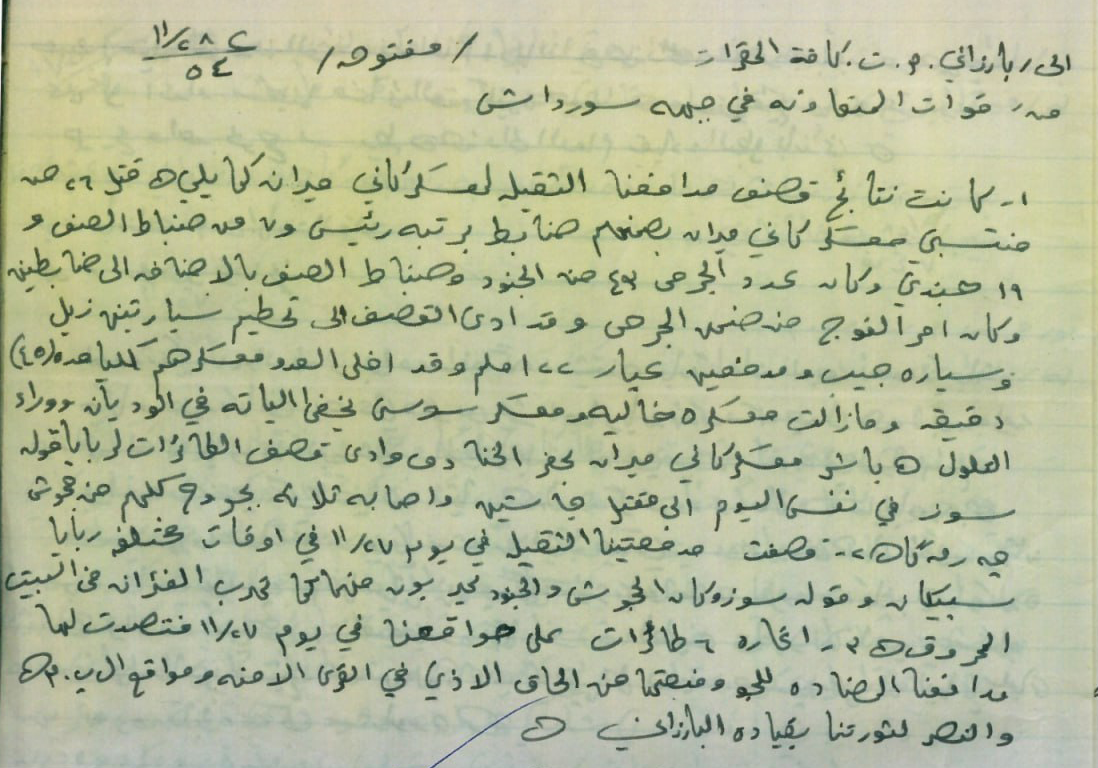 الى / بارزاني . م . ت . كافة المقرات / مفتوحه / ١١/٢٨ ع
٥٤
من / قوات المتعاونه في جبهه سورداشى
١- كانت نتائج قصف مدافعنا الثقيله لمعسكر كاني ميدان كما يلي ٥ قتل ٢٦ من
منتسبي معسكر كاني ميدان بضمنهم ضابط برتبه رئيس و ٧ من ضباط الصف و
١٩ جندي وكان عدد الجرحى ٤٣ من الجنود وضباط الصف بالاضافه الى ضابطين
وكان امر الفوج من ضمن الجرحى وقد ادى القصف الى تحطيم سيارتين زيل
وسياره جيب ومدفعين عيار ١٢٠ ملم وقد اخلى العدو معسكرهم لمده (٤٥)
دقيقه ومازالت معسكره خاليه ومعسكر سوسى يخفى الياته في الوديان ووراء
التلول ٥ باشر معسكر كاني ميدان بحفر الخنادق وادى قصف الطائرات لربايا قوله
سوز في نفس اليوم الى مقتل جاشين واصابه ثلاثه بجروح كلهم من جحوش
جه مه كا ٥ ٢- قصفت مدفعيتنا الثقيله في يوم ١١/٢٧ في اوقات مختلفه ربايا
سيكان وقوله سوز وكان الجحوش والجنود يهربون منها كما تهرب الفئران من البيت
المحروق ٥ ٣- اغاره ٦ طائرات على مواقعنا في يوم ١١/٢٧ فتصدت لها
مدافعنا المضاده للجو ومنعتها من الحاق الاذى في القرى الامنه ومواقع ال ب . م ٥
والنصر لثورتنا بقياده البارزاني ٥